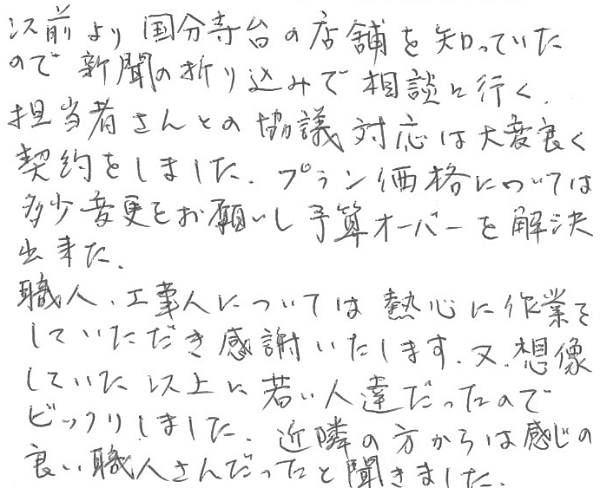 以前より国分寺台の店舗を知っていた
ので新聞の折り込みで相談に行く.
担当者さんとの協議対応は大変良く
契約をしました. プラン価格については
多少変更をお願いし予算オーバーを解決
出来た.
職人、工事人については熱心に作業を
していただき感謝いたします. 又. 想像
していた以上に若い人達だったので
ビックリしました. 近隣の方からは感じの
良い職人さんだったと聞きました.